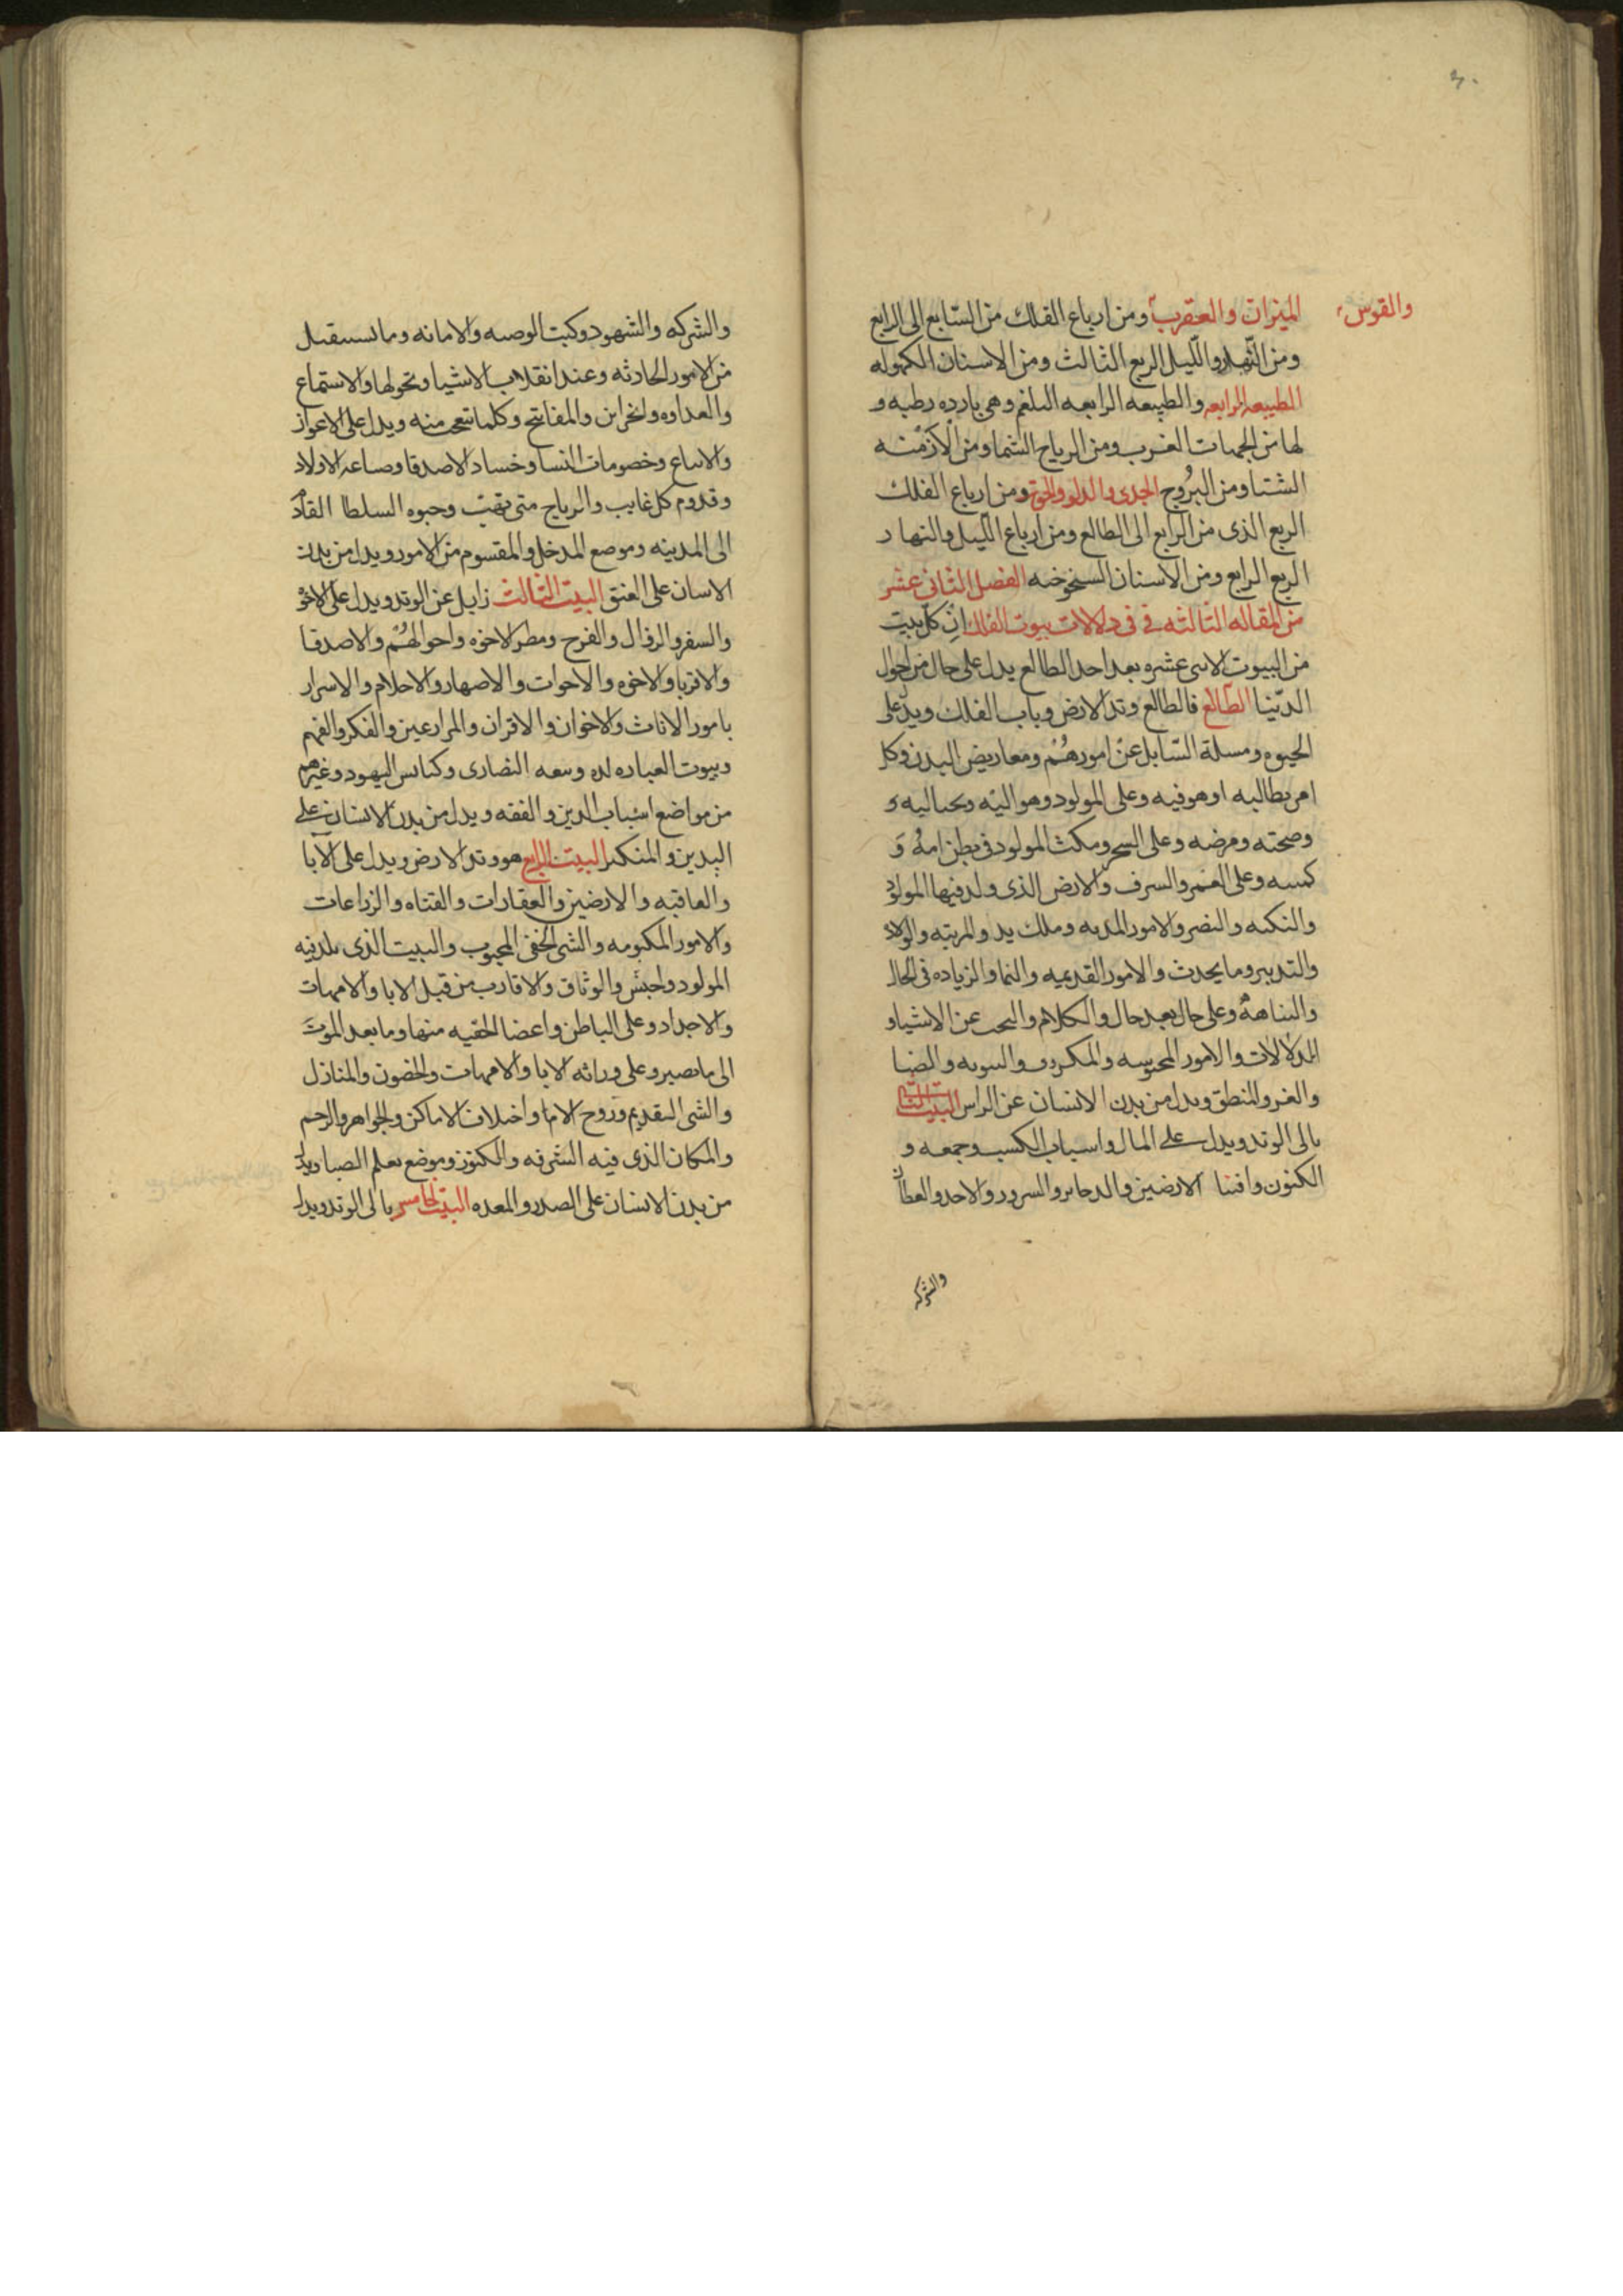 ٣٠
والقوس
الميزان والعقرب ومن ارباع الفلك من السابع الى الرابع
ومن النهار والليل الربع الثالث ومن الاسنان الكهوله
الطبيعه الرابعه والطبيعه الرابعه البلغم وهى بارده رطبه و
لها من الجهات الغرب ومن الرياح الشما ومن الازمنه
الشتا ومن البروج الجدى والدلو والحوت ومن ارباع الفلك
الربع الذى من الرابع الى الطالع ومن ارباع الليل والنهار
الربع الرابع ومن الاسنان السيخوخه الفصل الثانى عشر
من المقاله الثالثه فى فى دلالات بيوت الفلك ان كل بيت
من البيوت الاثنى عشره بعد احد الطالع يدل على حال من احوال
الدنيا الطالع فالطالع وتد الارض وباب الفلك ويدل على
الحيوه ومسلة السايل عن امورهم ومعاريض البدن وكل
امر يطالبه او هو فيه وعلى المولود وهو اليه
وصحته ومرضه وعلى السحر ومكث المولود فى بطن امه و
كسبه وعلى العمر والسرف والارض الذى ولد فيها المولود
والنكبه والنصر والامور وملك يد والمرتبه والولاد
والتدبير وما يحدث والامور القديمه والنما والزياده فى الحال
والنباهة وعلى حال بعد حال والكلام والبحث عن الاشيا و
الدلالات والامور والضيا
والمنطق ويدل من بدن الانسان عن الراس البيت الثانى
يالى الوتد ويدل على المال واسباب الكسب وجمعه و
الكنون واقتنا الارضين والدحاير والسرور والاحد والعطا
والشركه
والشركه والشهود وكيت الوصيه والامانه وما يستقبل
من الامور الحادثه وعند انقلاب الاشيا وتحولها والاستماع
والعداوه والخزاين والمفاتيح وكلما تتعجب منه ويدل على الاعوان
والاتباع وخصومات النسا وفساد الاصدقا وصناعه الاولاد
وقدوم كل غايب والرياح متى تهب وحبوه السلطا القاد
الى المدينه وموضع المدخل والمقسوم من الامور ويدل من بدن
الاسان على العنق البيت الثالث زايل عن الوتد ويدل على الاخو
والسفر والزوال والفرح ومطر الاخوه واحوالهم والاصدقا
والاقربا والاخوه والاخوات والاصهار والاحلام والاسرار
بامور الاناث والاخوان والاقران والمرارعين والفكر والفهم
وبيوت العباده وسعه النصارى وكنايس اليهود وغيرهم
من مواضع اسباب الدين والفقه ويدل من بدن الانسان على
اليدين والمنكبين البيت الرابع هو وتد الارض ويدل على الابا
والعاقبه والارضين والعقارات والقناه والزراعات
والامور المكتومه والشى الخفى المحبوب والبيت الذى يلد فيه
المولود والحبس والوثاق والاقارب من قبل الابا والامهات
والاجداد وعلى الباطن واعضا الخفيه منها وما بعد الموت
الى ما يصير وعلى وراثه الابا والامهات والحصون والمنازل
والشى القديم وزوج الاما واختلاف الاماكن والجواهر والرحم
والمكان الذى فيه السرقه والكنوز وموضع تعلم الصبا ويدل
من بدن الانسان على الصدر والمعده البيت الخامس يالى الوتد ويدل